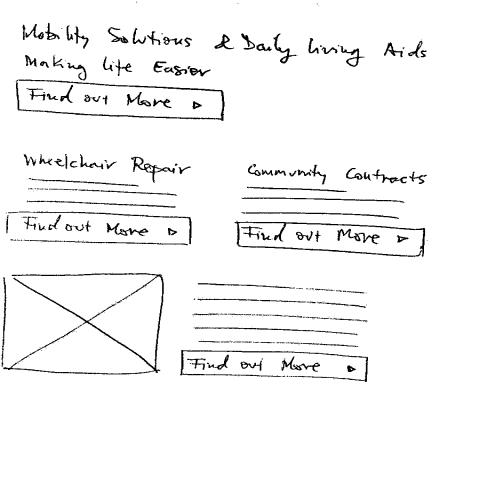 Mobility Solutions & Daily Living Aids
Making Life Easier
Find out More
Wheelchair Repair
Find out More
Community Contracts
Find out More
Find out More